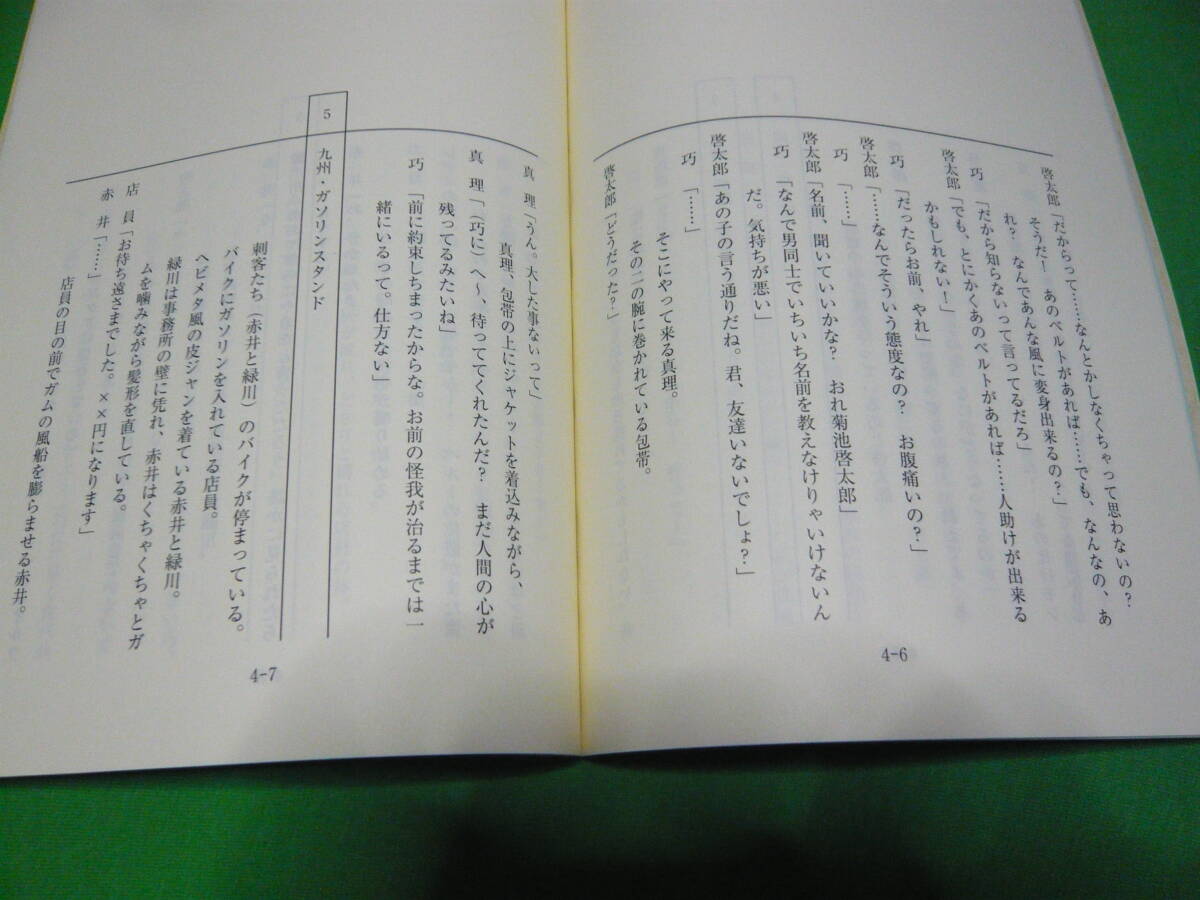 啓太郎「だからって……なんとかしなくちゃって思わないの？
そうだ！　あのベルトがあれば……でも、なんなの、あ
れ？　なんであんな風に変身出来るの？」
巧　「だから知らないって言ってるだろ」
啓太郎「でも、とにかくあのベルトがあれば……人助けが出来る
かもしれない！」
巧　「だったらお前、やれ」
啓太郎「……なんでそういう態度なの？　お腹痛いの？」
巧　「……」
啓太郎「名前、聞いていいかな？　おれ菊池啓太郎」
巧　「なんで男同士でいちいち名前を教えなけりゃいけないん
だ。気持ちが悪い」
啓太郎「あの子の言う通りだね。君、友達いないでしょ？」
巧　「……」
そこにやって来る真理。
その二の腕に巻かれている包帯。
啓太郎「どうだった？」
4-6
真　理「うん。大した事ないって」
真理、包帯の上にジャケットを着込みながら、
真　理「（巧に）へ〜、待っててくれたんだ？　まだ人間の心が
残ってるみたいね」
巧　「前に約束しちまったからな。お前の怪我が治るまでは一
緒にいるって。仕方ない」
5　九州・ガソリンスタンド
刺客たち（赤井と緑川）のバイクが停まっている。
バイクにガソリンを入れている店員。
ヘビメタ風の皮ジャンを着ている赤井と緑川。
緑川は事務所の壁に凭れ、赤井はくちゃくちゃとガ
ムを噛みながら髪形を直している。
店　員「お待ち遠さまでした。××円になります」
赤　井「……」
店員の目の前でガムの風船を膨らませる赤井。
4-7